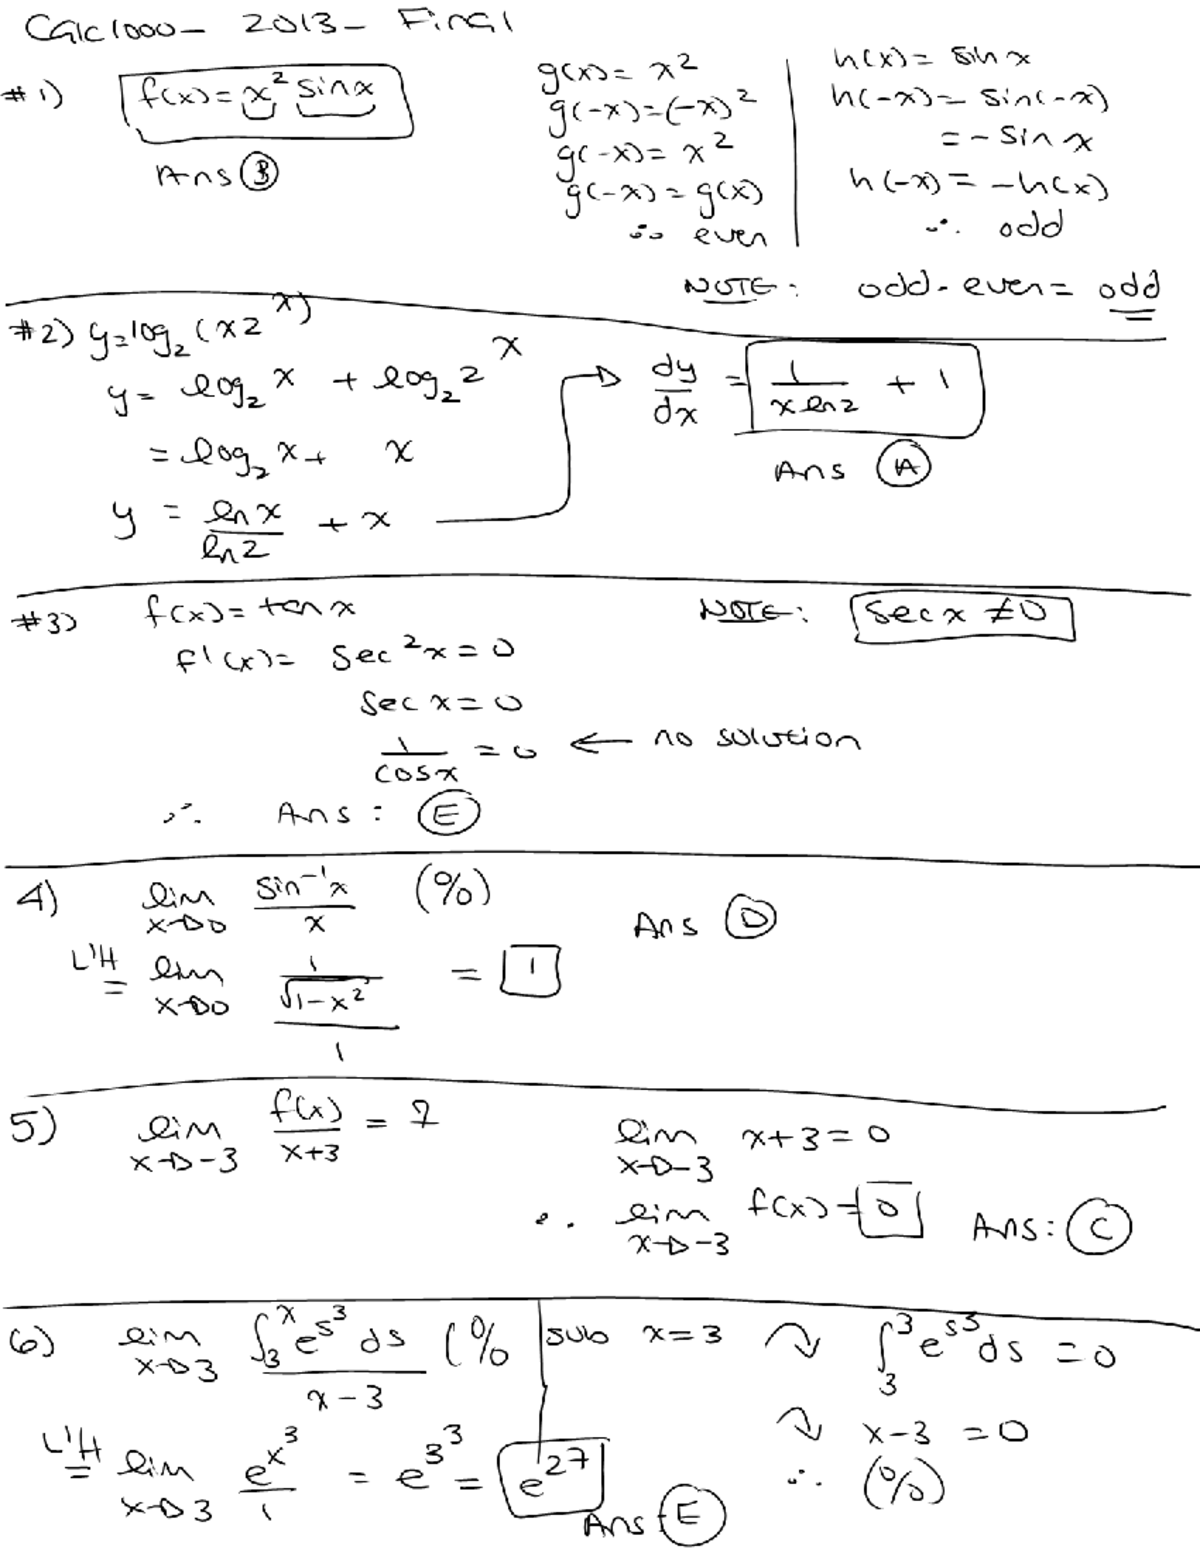 Calc1000 - 2013 - Final
#1) f(x) = x² sinx
Ans Ⓑ
g(x) = x²
g(-x) = (-x)²
g(-x) = x²
g(-x) = g(x)
∴ even
h(x) = sin x
h(-x) = sin(-x)
= - sin x
h(-x) = -h(x)
∴ odd
NOTE: odd · even = odd
#2) y = log₂(x2^x)
y = log₂ x + log₂ 2^x
= log₂ x + x
y = ln x / ln 2 + x
dy/dx = 1/(x ln 2) + 1
Ans Ⓐ
#3) f(x) = tan x
f'(x) = sec² x = 0
sec x = 0
1/cos x = 0 ← no solution
∴ Ans: Ⓔ
NOTE: sec x ≠ 0
4) lim x→0 sin⁻¹x / x (0/0)
L'H = lim x→0 (1/√(1-x²)) / 1 = 1
Ans Ⓓ
5) lim x→-3 f(x)/(x+3) = 7
lim x→-3 x+3 = 0
∴ lim x→-3 f(x) = 0 Ans: Ⓒ
6) lim x→3 ∫₃^x e^(s³) ds / (x-3) (0/0
L'H = lim x→3 e^(x³) / 1 = e^(3³) = e^27
Ans Ⓔ
sub x=3 ∫₃³ e^(s³) ds = 0
x-3 = 0
∴ (0/0)